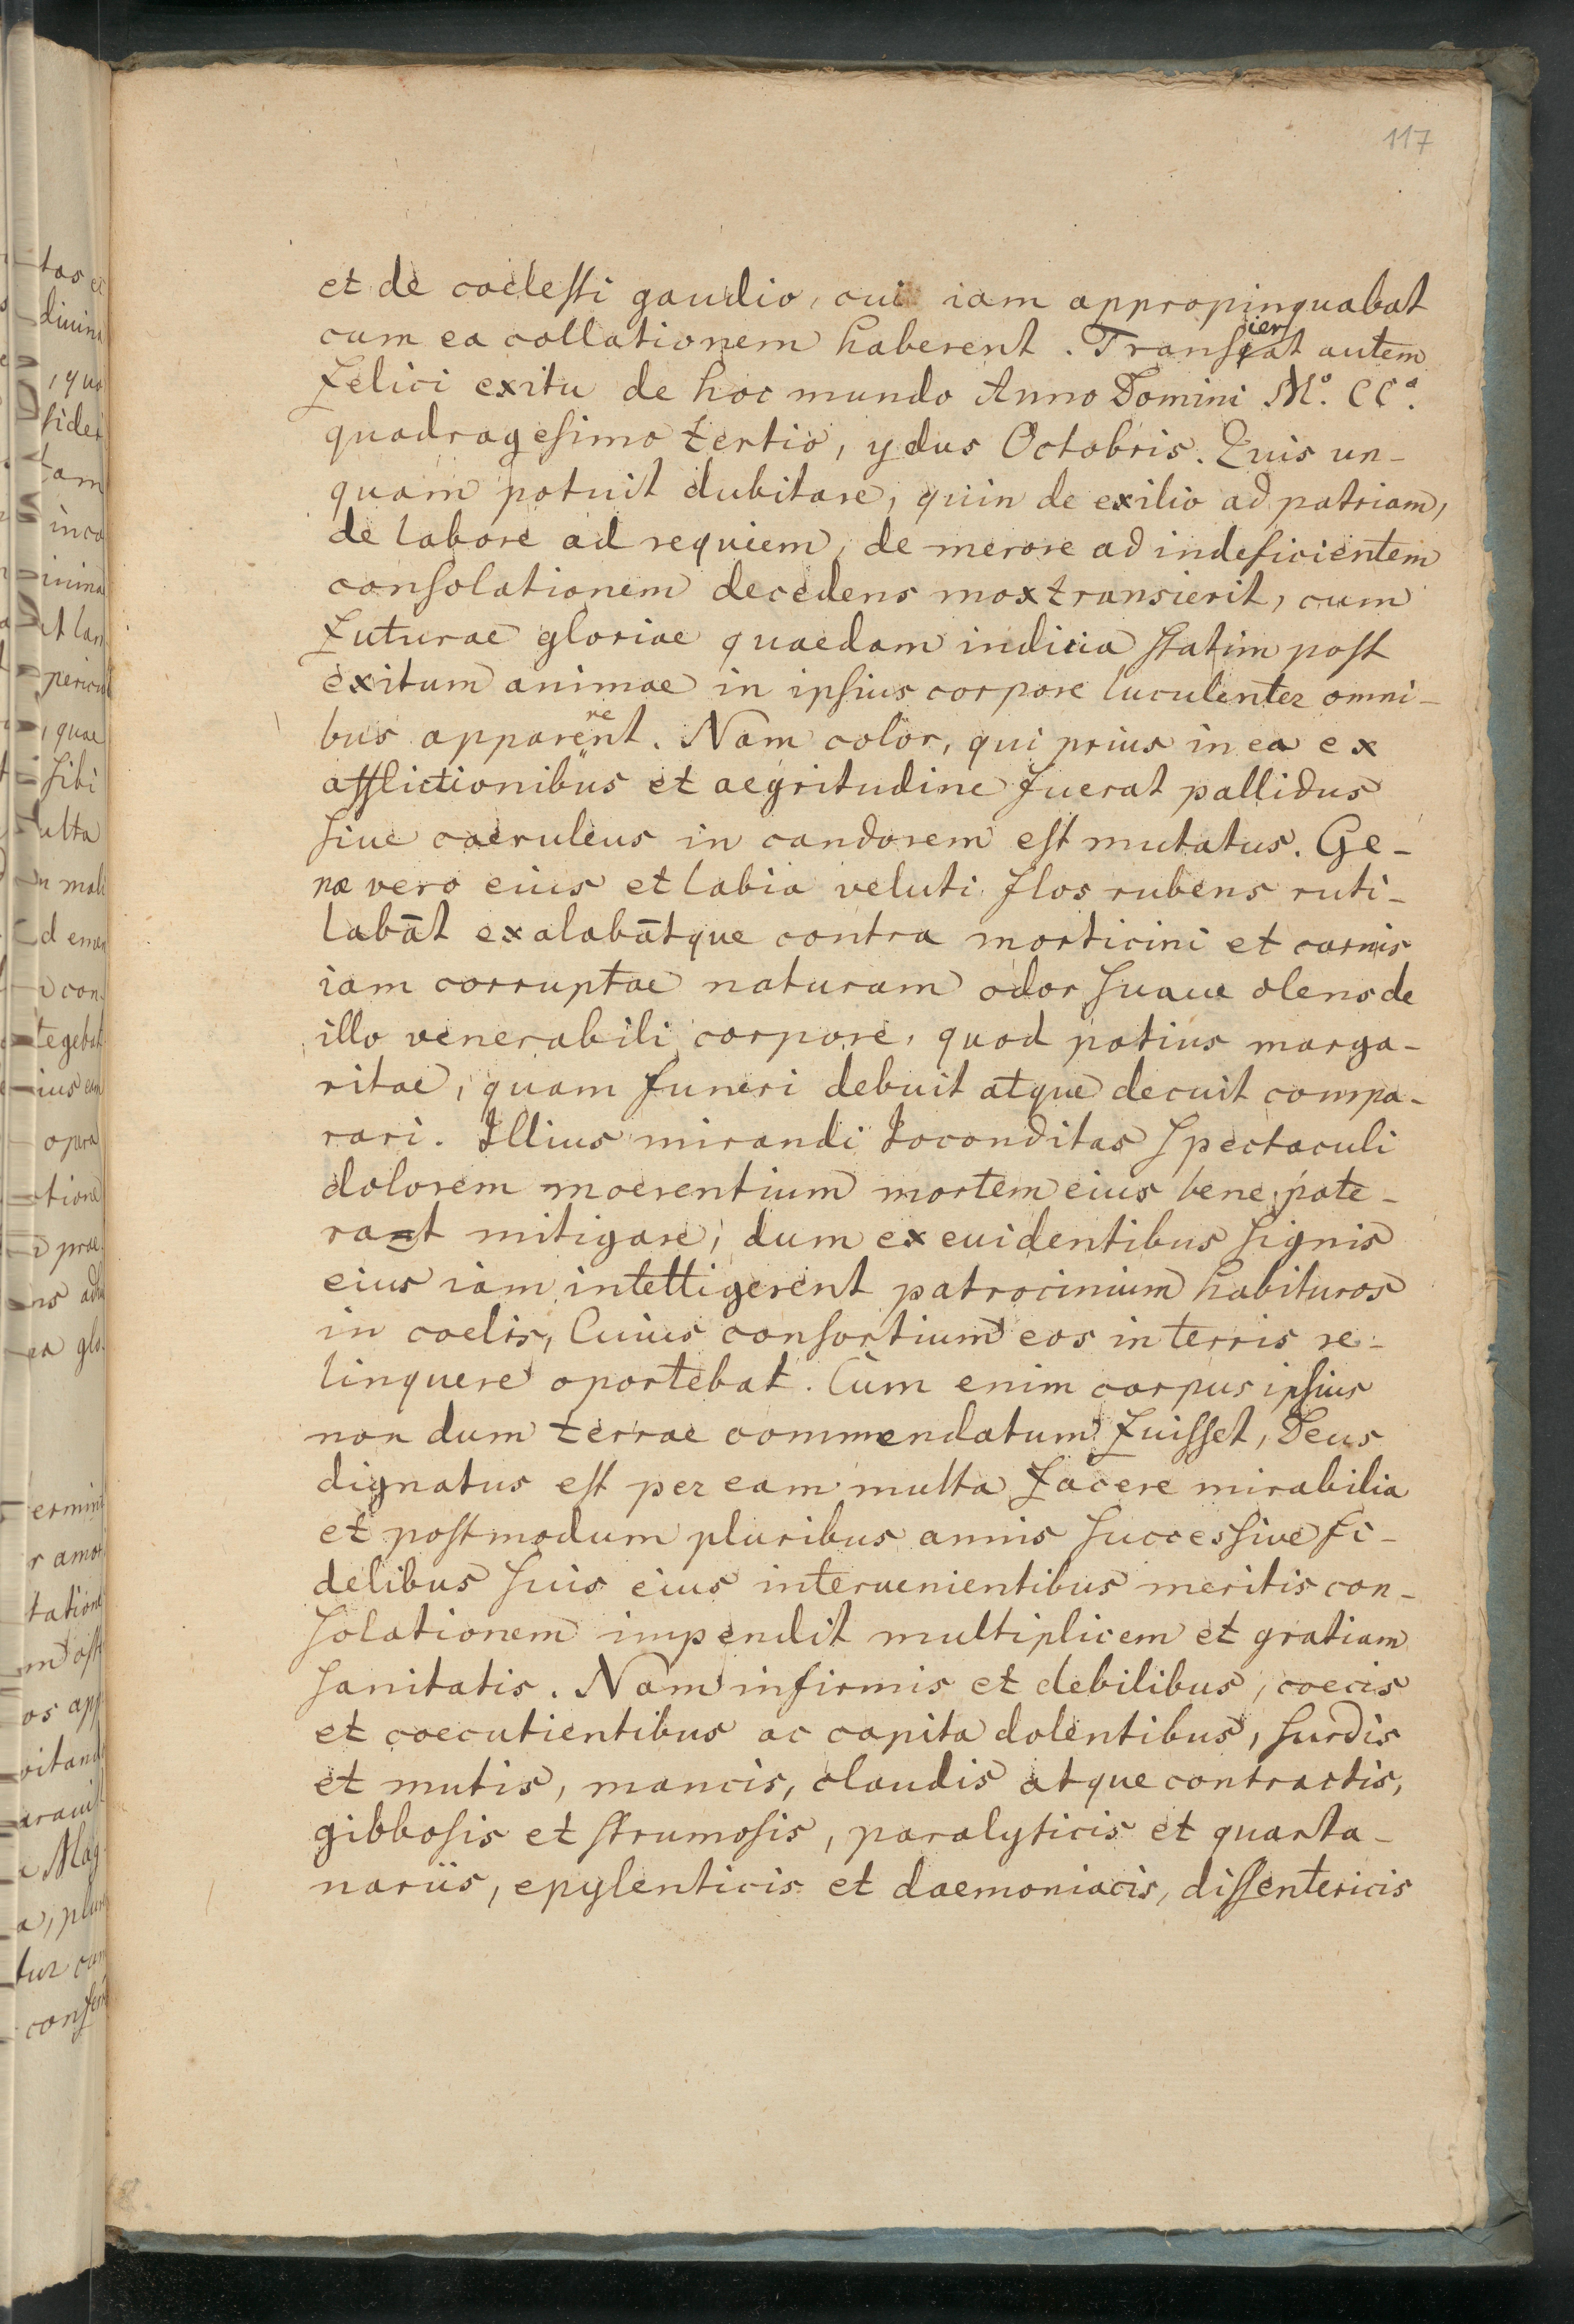 117
et de coelesti gaudio, cui iam appropinquabat
cum ea collationem haberent. Transierat autem
felici exitu de hoc mundo Anno Domini Mº. CCº.
quadragesimo tertio, ydus Octobris. Quis un-
quam potuit dubitare, quin de exilio ad patriam,
de labore ad requiem, de merore ad indeficientem
consolationem decedens mox transierit, cum
futurae gloriae quaedam indicia statim post
exitum animae in ipsius corpore luculenter omni-
bus apparerent. Nam color, qui prius in ea ex
afflictionibus et aegritudine fuerat pallidus
siue caeruleus in candorem est mutatus. Ge-
næ vero eius et labia veluti flos rubens ruti-
labāt exalabātque contra morticini et carnis
iam corruptae naturam odor suaue olens de
illo venerabili corpore, quod potius marga-
ritae, quam funeri debuit atque decuit compa-
rari. Illius mirandi Iocunditas spectaculi
dolorem moerentium mortem eius bene pote-
rant mitigare, dum ex euidentibus signis
eius iam intelligerent patrocinium habituros
in coelis, Cuius consortium eos in terris re-
linquere oportebat. Cùm enim corpus ipsius
non dum terrae commendatum fuisset, Deus
dignatus est per eam multa facere mirabilia
et postmodum pluribus annis successive fi-
delibus suis eius interuenientibus meritis con-
solationem impendit multiplicem et gratiam
sanitatis. Nam infirmis et debilibus, coecis
et coecutientibus ac capita dolentibus, surdis
et mutis, mancis, claudis atque contractis,
gibbosis et strumosis, paralyticis et quarta-
nariis, epylenticis et daemoniacis, dissentericis